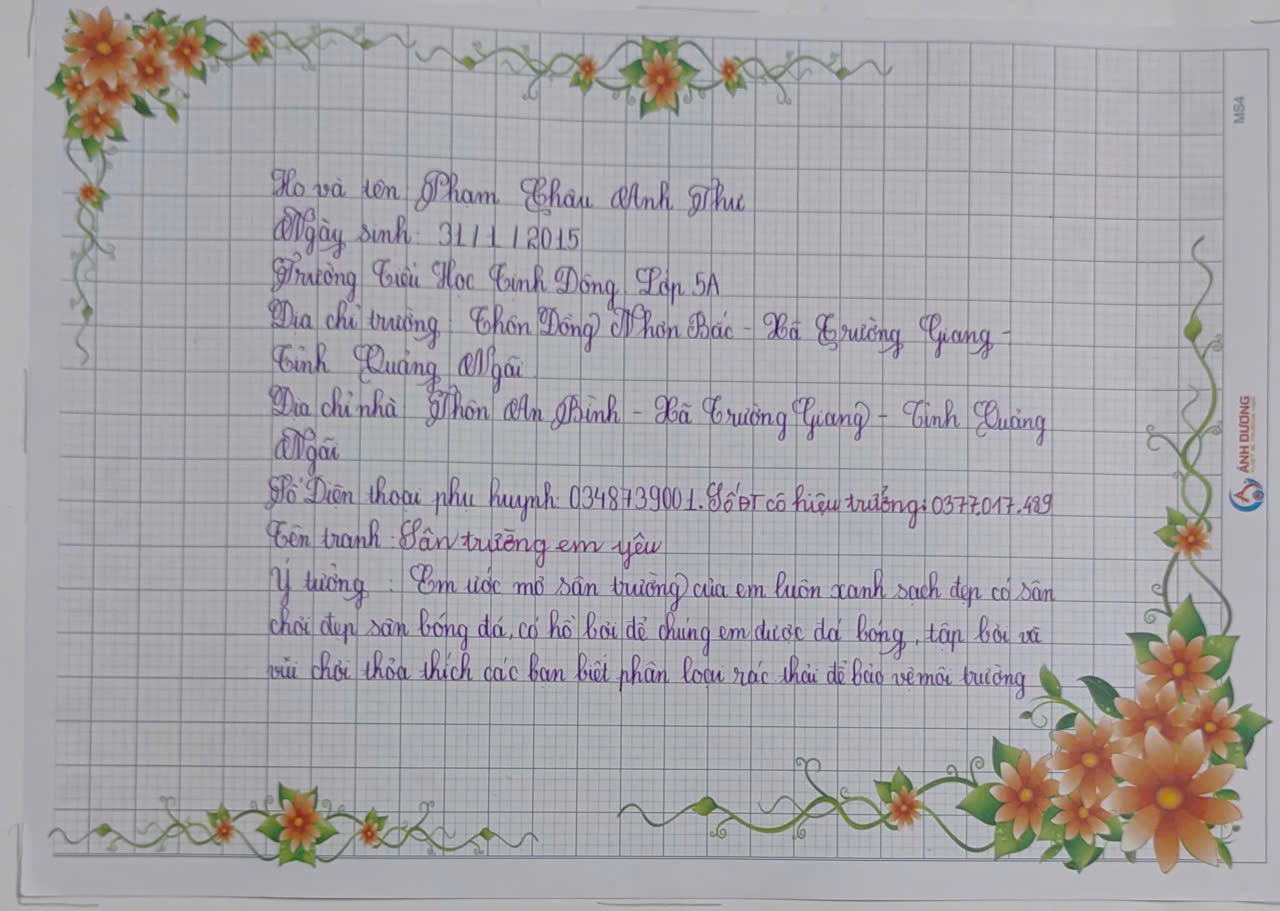 Họ và tên Phạm Châu Anh Thư
Ngày sinh: 31/1/2015
Trường Tiểu Học Tịnh Đông Lớp 5A
Địa chỉ trường: Thôn Đồng Nhơn Bắc - Xã Trường Giang -
Tỉnh Quảng Ngãi.
Địa chỉ nhà Thôn An Bình - Xã Trường Giang - Tỉnh Quảng
Ngãi
Số Điện thoại phụ huynh: 0348739001. Số ĐT cô hiệu trưởng: 0377.017.489
Tên tranh: Sân trường em yêu
Ý tưởng: Em ước mơ sân trường của em luôn xanh sạch đẹp có sân
chơi đẹp sân bóng đá, có hồ bơi để chúng em được đá bóng, tập bơi và
vui chơi thỏa thích các bạn biết phân loại rác thải để bảo vệ môi trường
MS4
ÁNH DƯƠNG